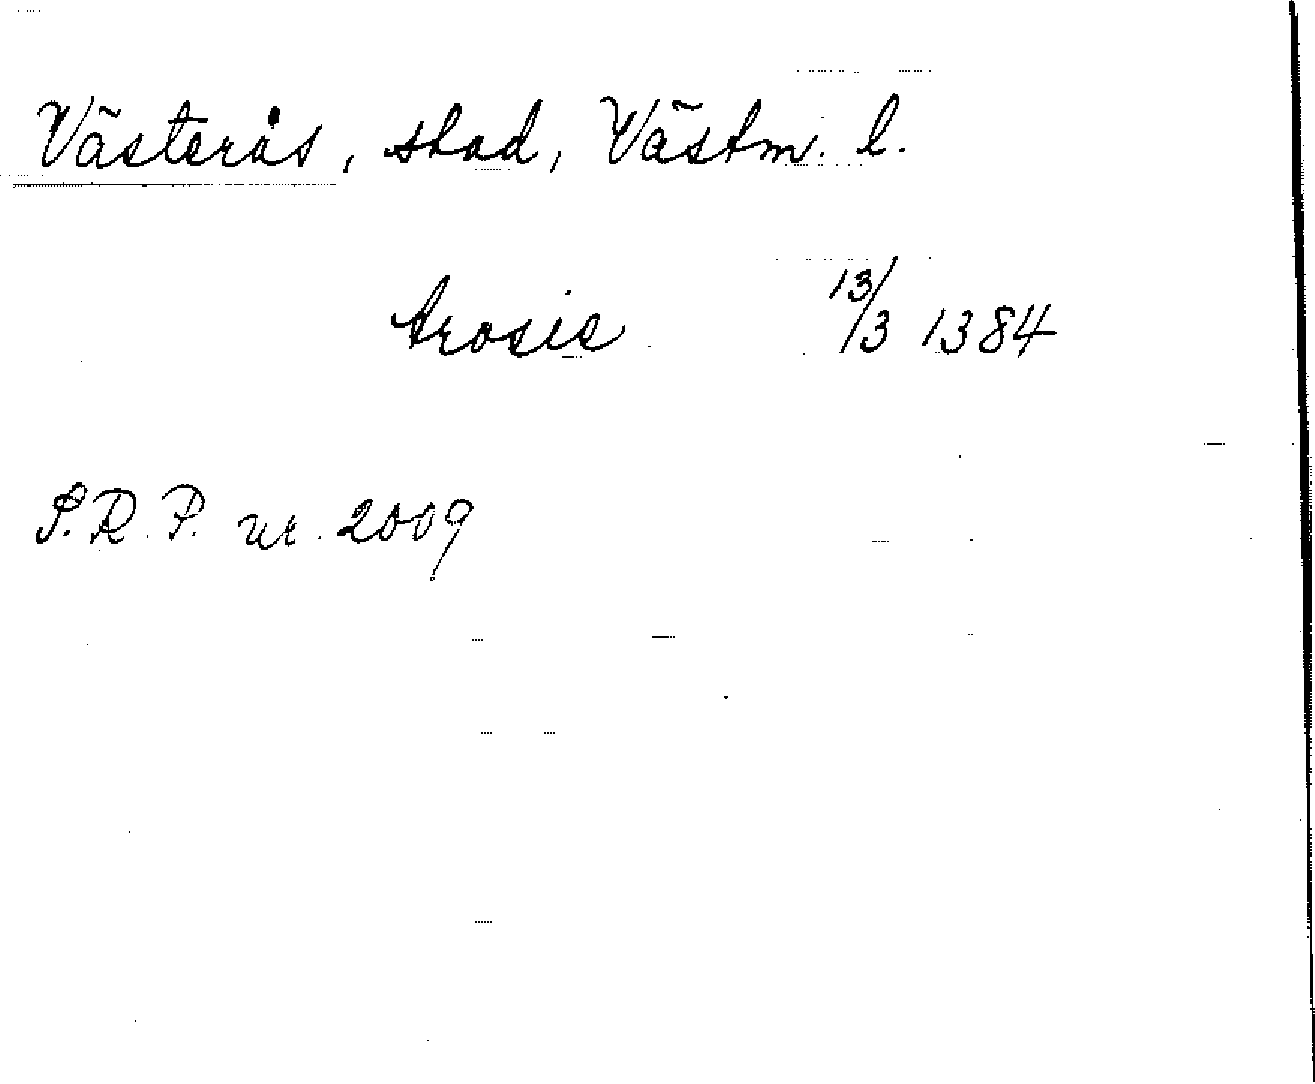 Västerås, stad, Västm. l.
Arosis 13/3 1384
S.R.P. nr. 2009